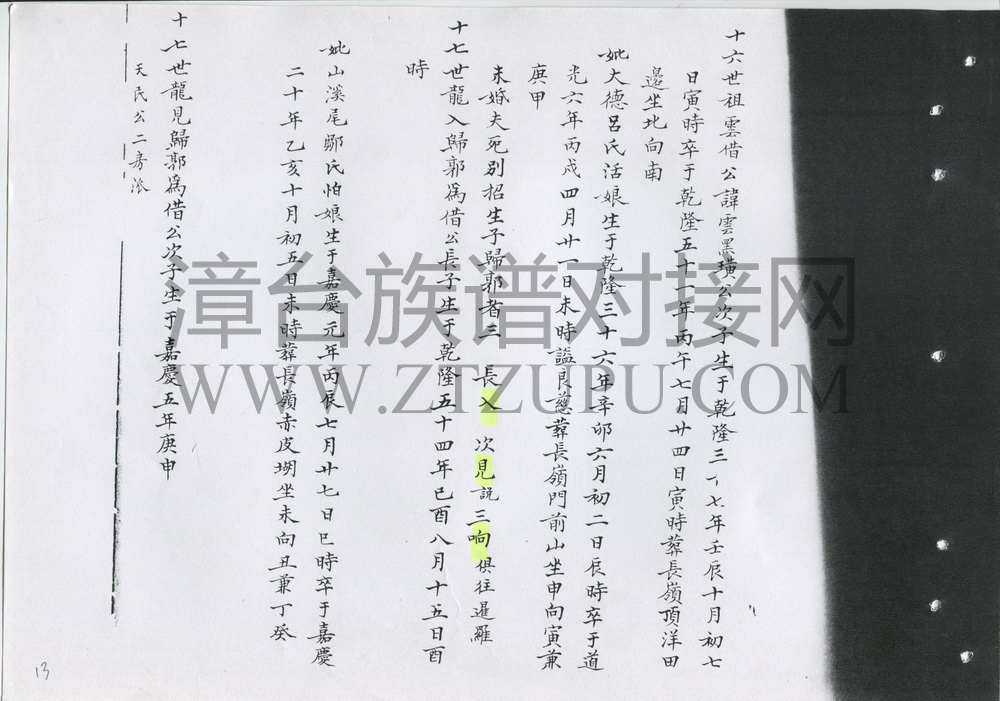 十六世祖雲借公諱雲黑璜公次子生于乾隆三十七年壬辰十月初七
日寅時卒于乾隆五十一年丙午七月廿四日寅時葬長嶺頂洋田
邊坐北向南
妣大德呂氏活娘生于乾隆三十六年辛卯六月初二日辰時卒于道
光六年丙戌四月廿一日未時謚良慈葬長嶺門前山坐申向寅兼
庚甲
未婚夫死別招生子歸郭者三 長入 次見 三响俱往暹羅
十七世龍入歸郭為借公長子生于乾隆五十四年己酉八月十五日酉
時
妣山溪尾鄒氏怕娘生于嘉慶元年丙辰七月廿七日巳時卒于嘉慶
二十年乙亥十月初五日未時葬長嶺赤皮坳坐未向丑兼丁癸
十七世龍見歸郭為借公次子生于嘉慶五年庚申
天民公二房派
漳台族谱对接网
WWW.ZTZUPU.COM
13